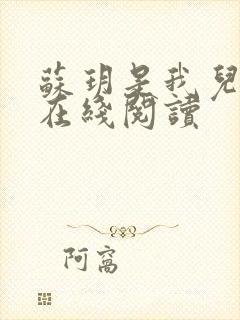 蘇玥是我兒
在綫閱讀
阿窩